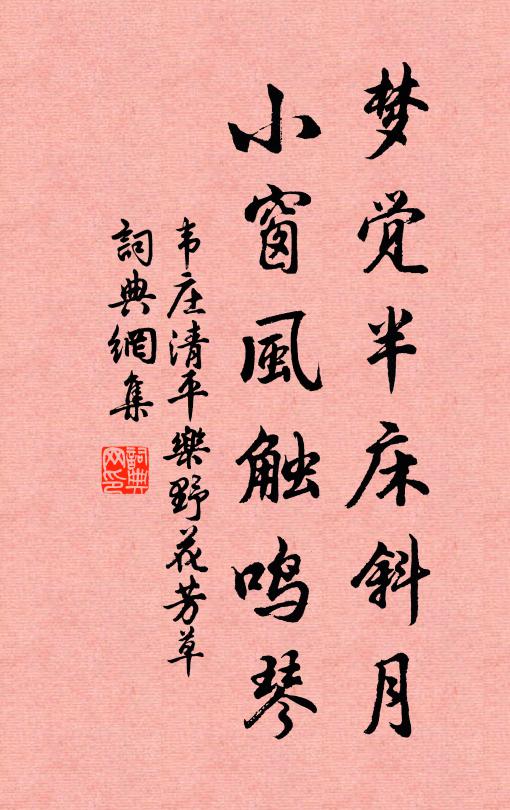 梦觉半床斜月
小窗風触鸣琴
韦庄清平樂野花芳草
詞典網集
詞典網印